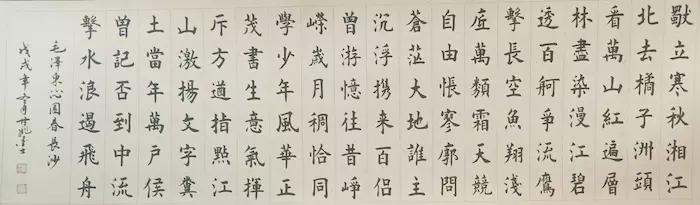 獨立寒秋湘江
北去橘子洲頭
看萬山紅遍層
林盡染漫江碧
透百舸爭流鷹
擊長空魚翔淺
底萬類霜天競
自由悵寥廓問
蒼茫大地誰主
沉浮携來百侣
曾游憶往昔崢
嶸歲月稠恰同
學少年風華正
茂書生意氣揮
斥方遒指點江
山激揚文字糞
土當年萬戶侯
曾記否到中流
擊水浪遏飛舟
毛澤東沁園春長沙
戊戌年